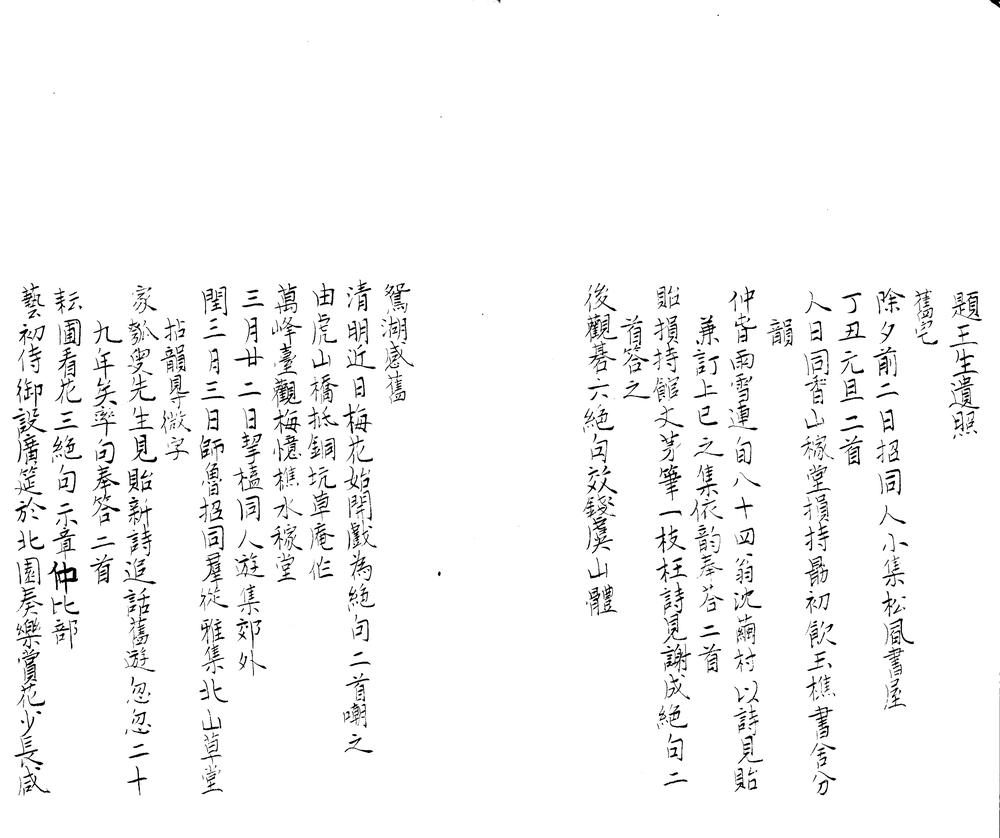 題王生遺照
舊宅
除夕前二日招同人小集松風書屋
丁丑元旦二首
人日同香山稼堂損持勗初飲玉樵書舍分
韻
仲春雨雪連旬八十四翁沈繭村以詩見貽
兼訂上巳之集依韵奉荅二首
貽損持館丈芽筆一枝枉詩見謝成絶句二
首答之
後觀碁六絶句效錢虞山體
鴛湖感舊
清明近日梅花始開戲為絶句二首嘲之
由虎山橋抵銅坑草庵作
萬峰臺觀梅憶樵水稼堂
三月廿二日挈榼同人遊集郊外
閏三月三日師魯招同羣從雅集北山草堂
拈韻得微字
家瓠叟先生見貽新詩追話舊遊忽忽二十
九年矣率句奉答二首
耘圃看花三絶句示章仲比部
藝初侍御設廣筵於北園奏樂賞花少長咸